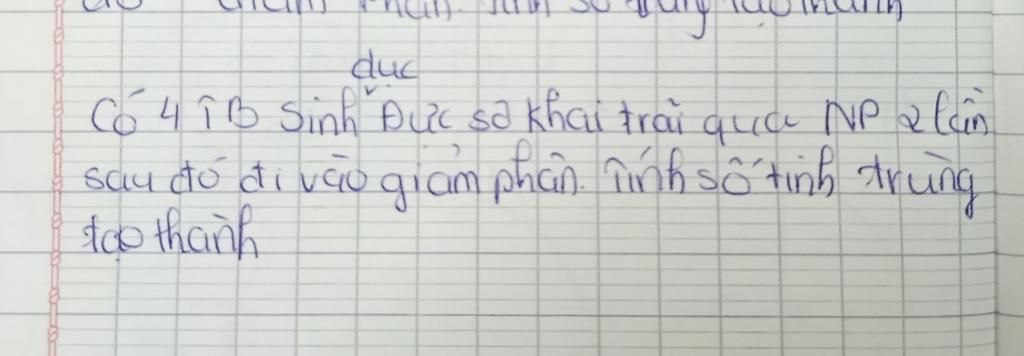 phân. Tính số trứng tạo thành
dục
Có 4 TB Sinh Đực sơ khai trải qua NP 2 lần
sau đó đi vào giảm phân. Tính số tinh trùng
tạo thành